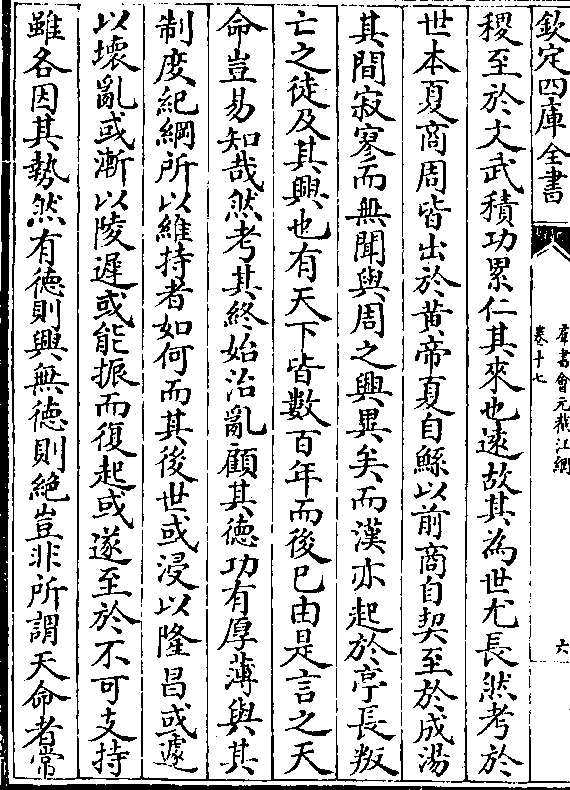 欽定四庫全書
羣書會元截江網
卷十七
六
稷至於文武積功累仁其來也遠故其為世尤長然考於
世本夏商周皆出於黄帝夏自鯀以前商自契至於成湯
其間寂寥而無聞與周之興異矣而漢亦起於亭長叛
亡之徒及其興也有天下皆數百年而後已由是言之天
命豈易知哉然考其終始治亂顧其徳功有厚薄與其
制度紀綱所以維持者如何而其後世或浸以隆昌或遽
以壊亂或漸以陵遲或能振而復起或遂至於不可支持
雖各因其勢然有徳則興無徳則絶豈非所謂天命者常